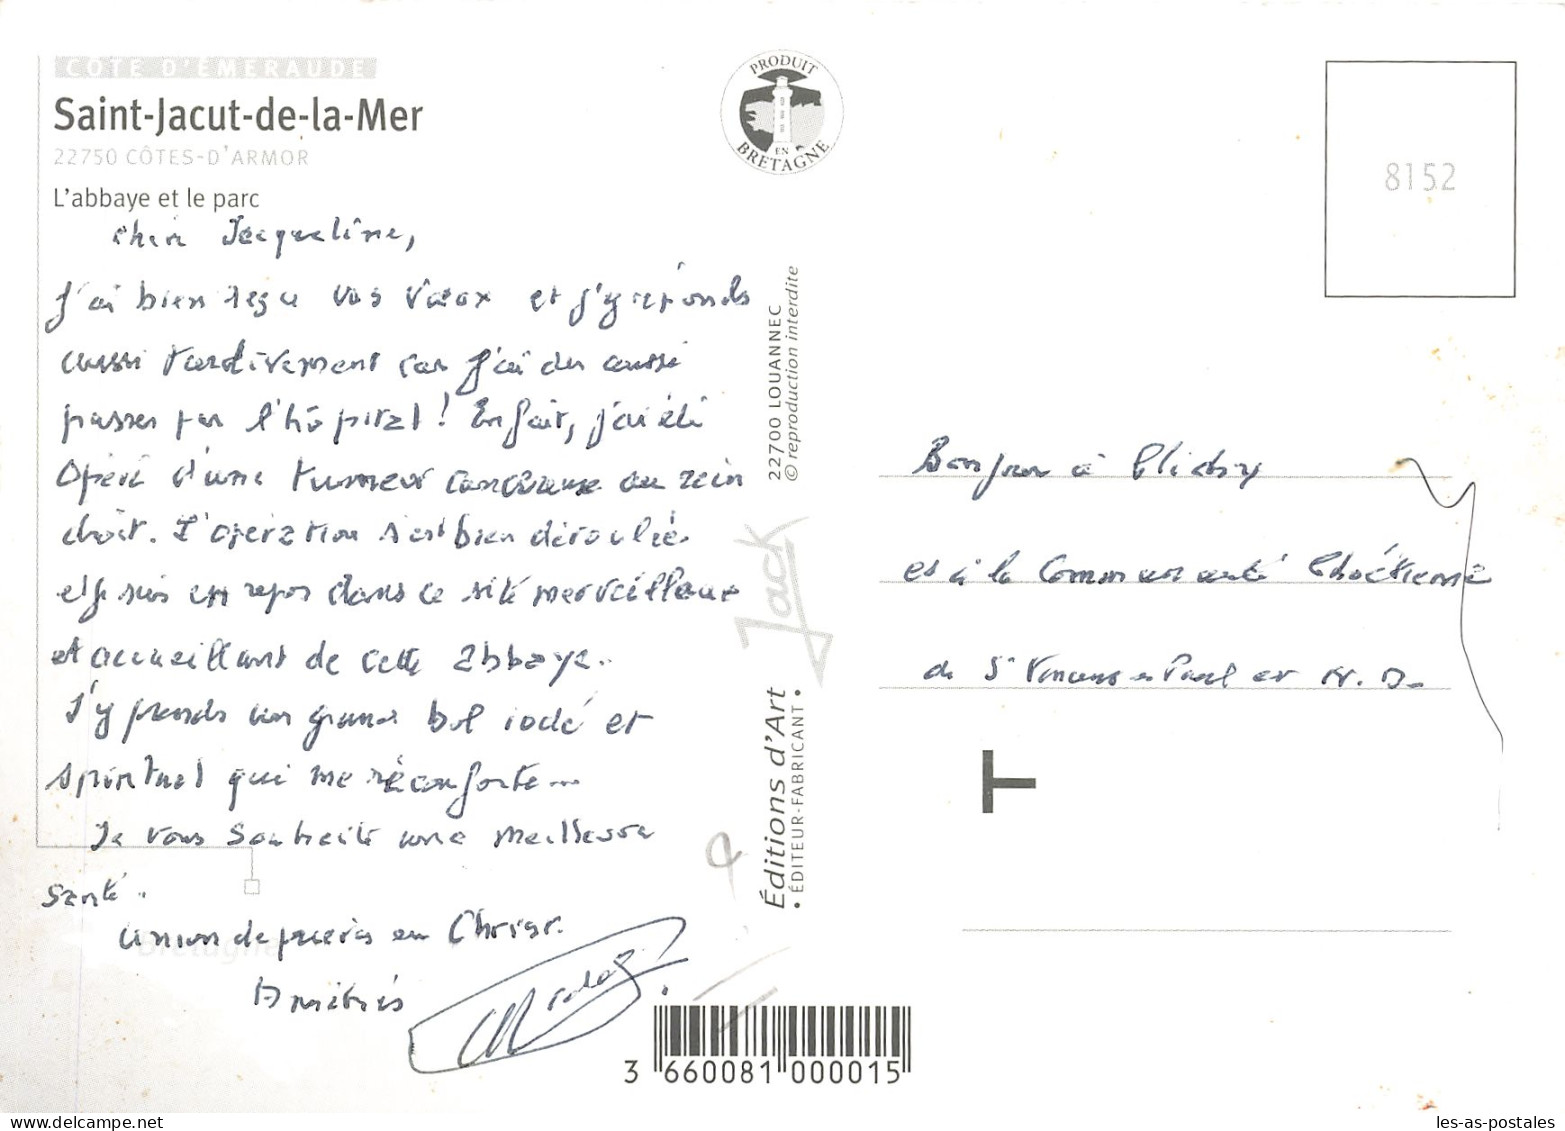 CÔTE D'ÉMERAUDE
Saint-Jacut-de-la-Mer
22750 CÔTES-D'ARMOR
L'abbaye et le parc
PRODUIT
EN
BRETAGNE
8152
chère Jacqueline,
J'ai bien reçu vos vœux et j'y réponds
aussi tardivement car j'ai du aussi
passer par l'hôpital ! En fait, j'ai été
opéré d'une tumeur cancéreuse au rein
droit. L'opération s'est bien déroulée
et je suis en repos dans ce site merveilleux
et accueillant de cette abbaye.
J'y prends un grand bol iodé et
spirituel qui me réconforte...
Je vous souhaite une meilleure
santé.
Union de prières en Christ.
22700 LOUANNEC
© reproduction interdite
Jack
Éditions d'Art
• ÉDITEUR-FABRICANT •
Bonjour à Clichy
et à la Communauté Chrétienne
de St Vincent de Paul et N. D.
T
Bretagne
3 660081 000015
les-as-postales